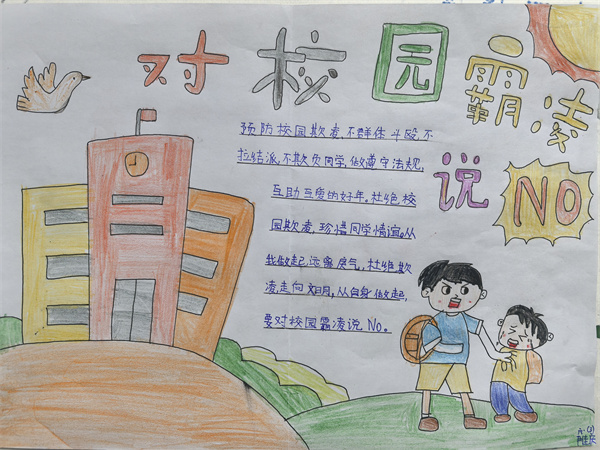 对校园霸凌
说NO
预防校园欺凌,不群体斗殴,不
拉结派,不欺负同学,做遵守法规,
互助互爱的好年,杜绝校
园欺凌,珍惜同学情谊。从
我做起,远离戾气,杜绝欺
凌,走向文明,从自身做起,
要对校园霸凌说No。